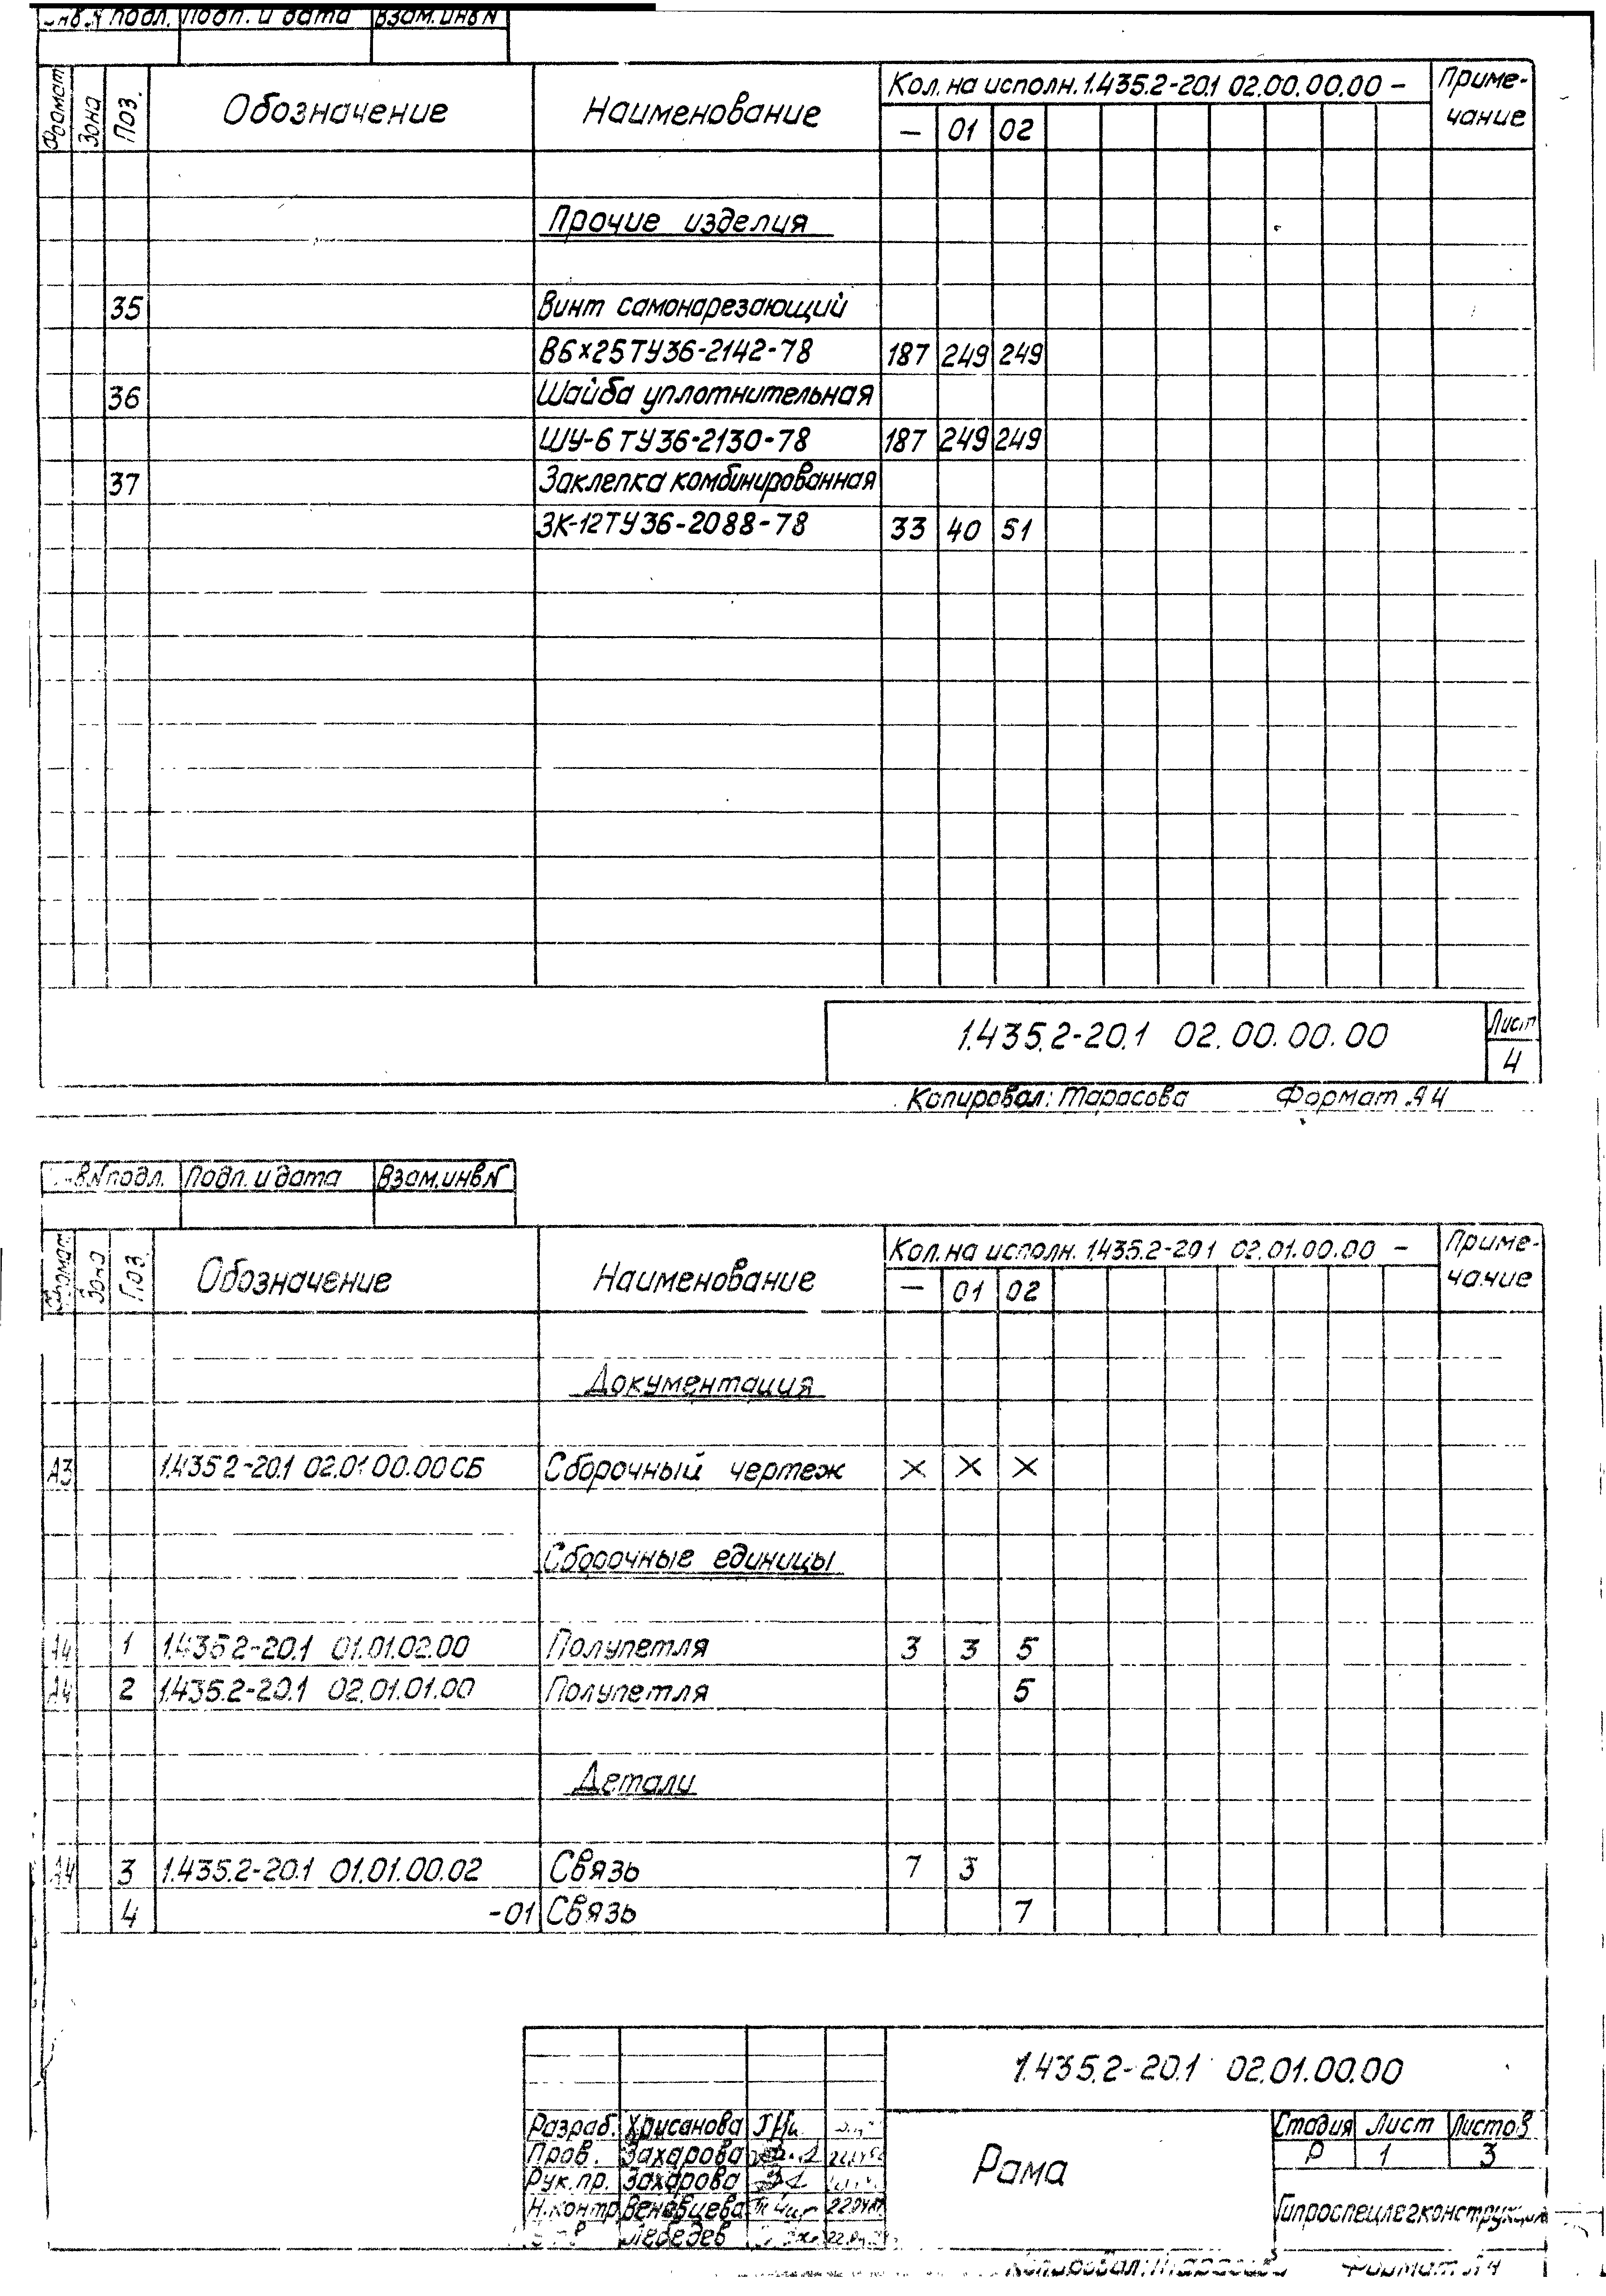 подл. Подп. и дата Взам.инв N
Формат Зона Поз. Обозначение Наименование Кол. на исполн. 1.435.2-20.1 02.00.00.00 – Приме-
чание
— 01 02
Прочие изделия
35 Винт самонарезающий
В6×25 ТУ36-2142-78 187 249 249
36 Шайба уплотнительная
ШУ-6 ТУ36-2130-78 187 249 249
37 Заклепка комбинированная
ЗК-12 ТУ36-2088-78 33 40 51
1.435.2-20.1 02.00.00.00 Лист
4
Копировал: Тарасова Формат А4
подл. Подп. и дата Взам.инв.N
Формат Зона Поз. Обозначение Наименование Кол. на исполн. 1.435.2-20.1 02.01.00.00 – Приме-
чание
— 01 02
Документация
А3 1.435.2-20.1 02.01.00.00 СБ Сборочный чертеж × × ×
Сборочные единицы
А4 1 1.435.2-20.1 01.01.02.00 Полупетля 3 3 5
А4 2 1.435.2-20.1 02.01.01.00 Полупетля 5
Детали
А4 3 1.435.2-20.1 01.01.00.02 Связь 7 3
4 -01 Связь 7
1.435.2-20.1 02.01.00.00
Разраб. Хрисанова
Пров. Захарова
Рук.пр. Захарова
Н.контр Веновцева
Лебедев
Рама
Стадия Лист Листов
Р 1 3
Гипроспецлегконструкция
Копировал: Тарасова Формат А4